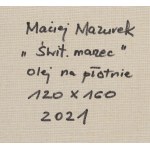 Maciej Mazurek
"Świt. marzec"
olej na płótnie
120 x 160
2021